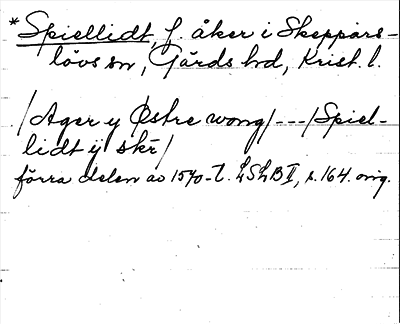 *Spiellidt, f. åker i Skeppars-
lövs sn, Gärds hd, Krist. l.
/Ager y Østre wong/---/Spiel-
lidt ij skr/
förra delen av 1570-t. LSLB II, s. 164. orig.